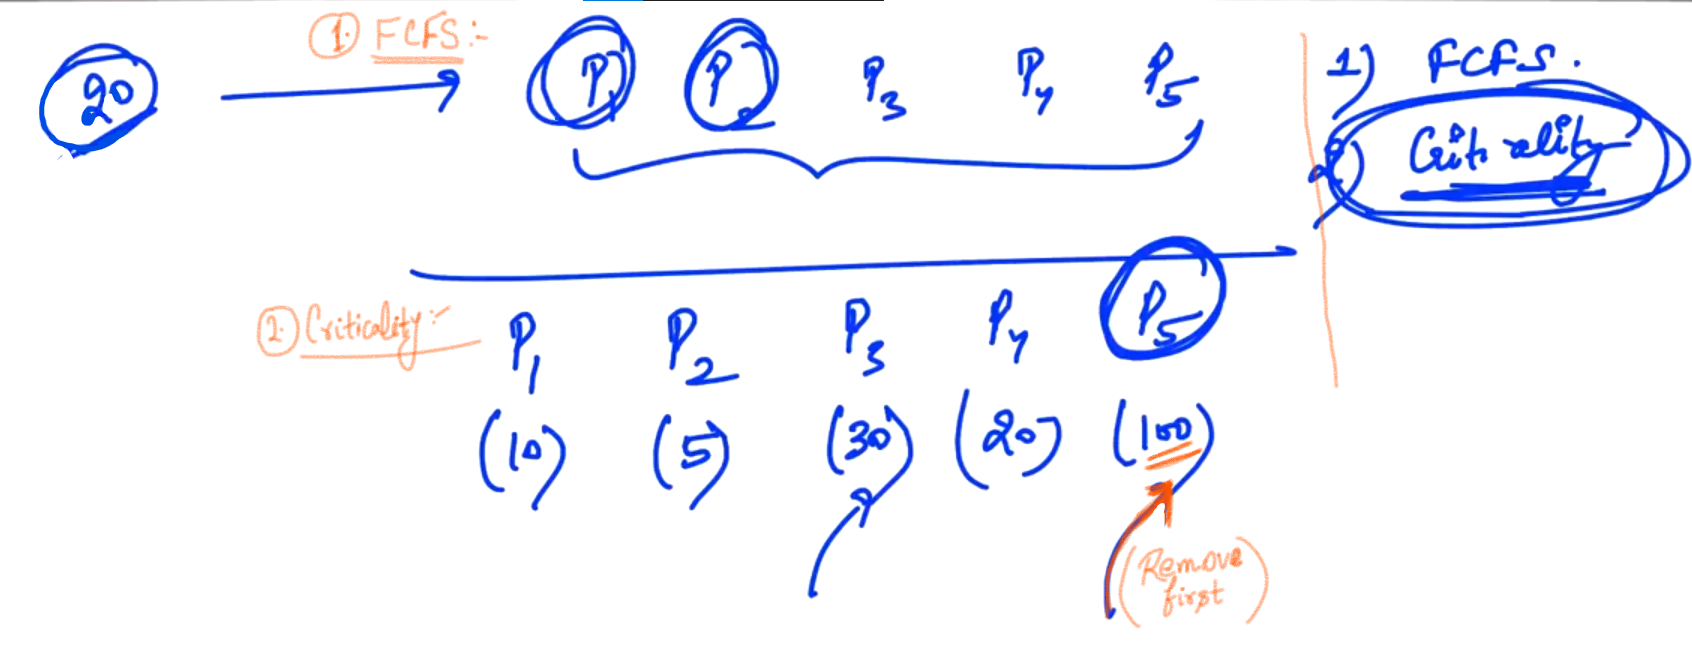 ① FCFS:-
20 P1 P2 P3 P4 P5
1) FCFS.
2) Criticality
② Criticality:-
P1 P2 P3 P4 P5
(10) (5) (30) (20) (100)
(Remove
first)